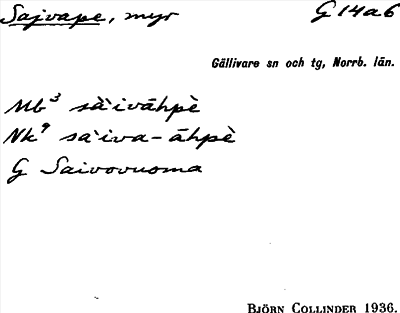 Sajvape, myr G 14a6
Gällivare sn och tg, Norrb. län.
Mb³ sà'ivāhpè
Nk⁹ sà'iva-āhpè
G Saivovuoma
BJÖRN COLLINDER 1936.